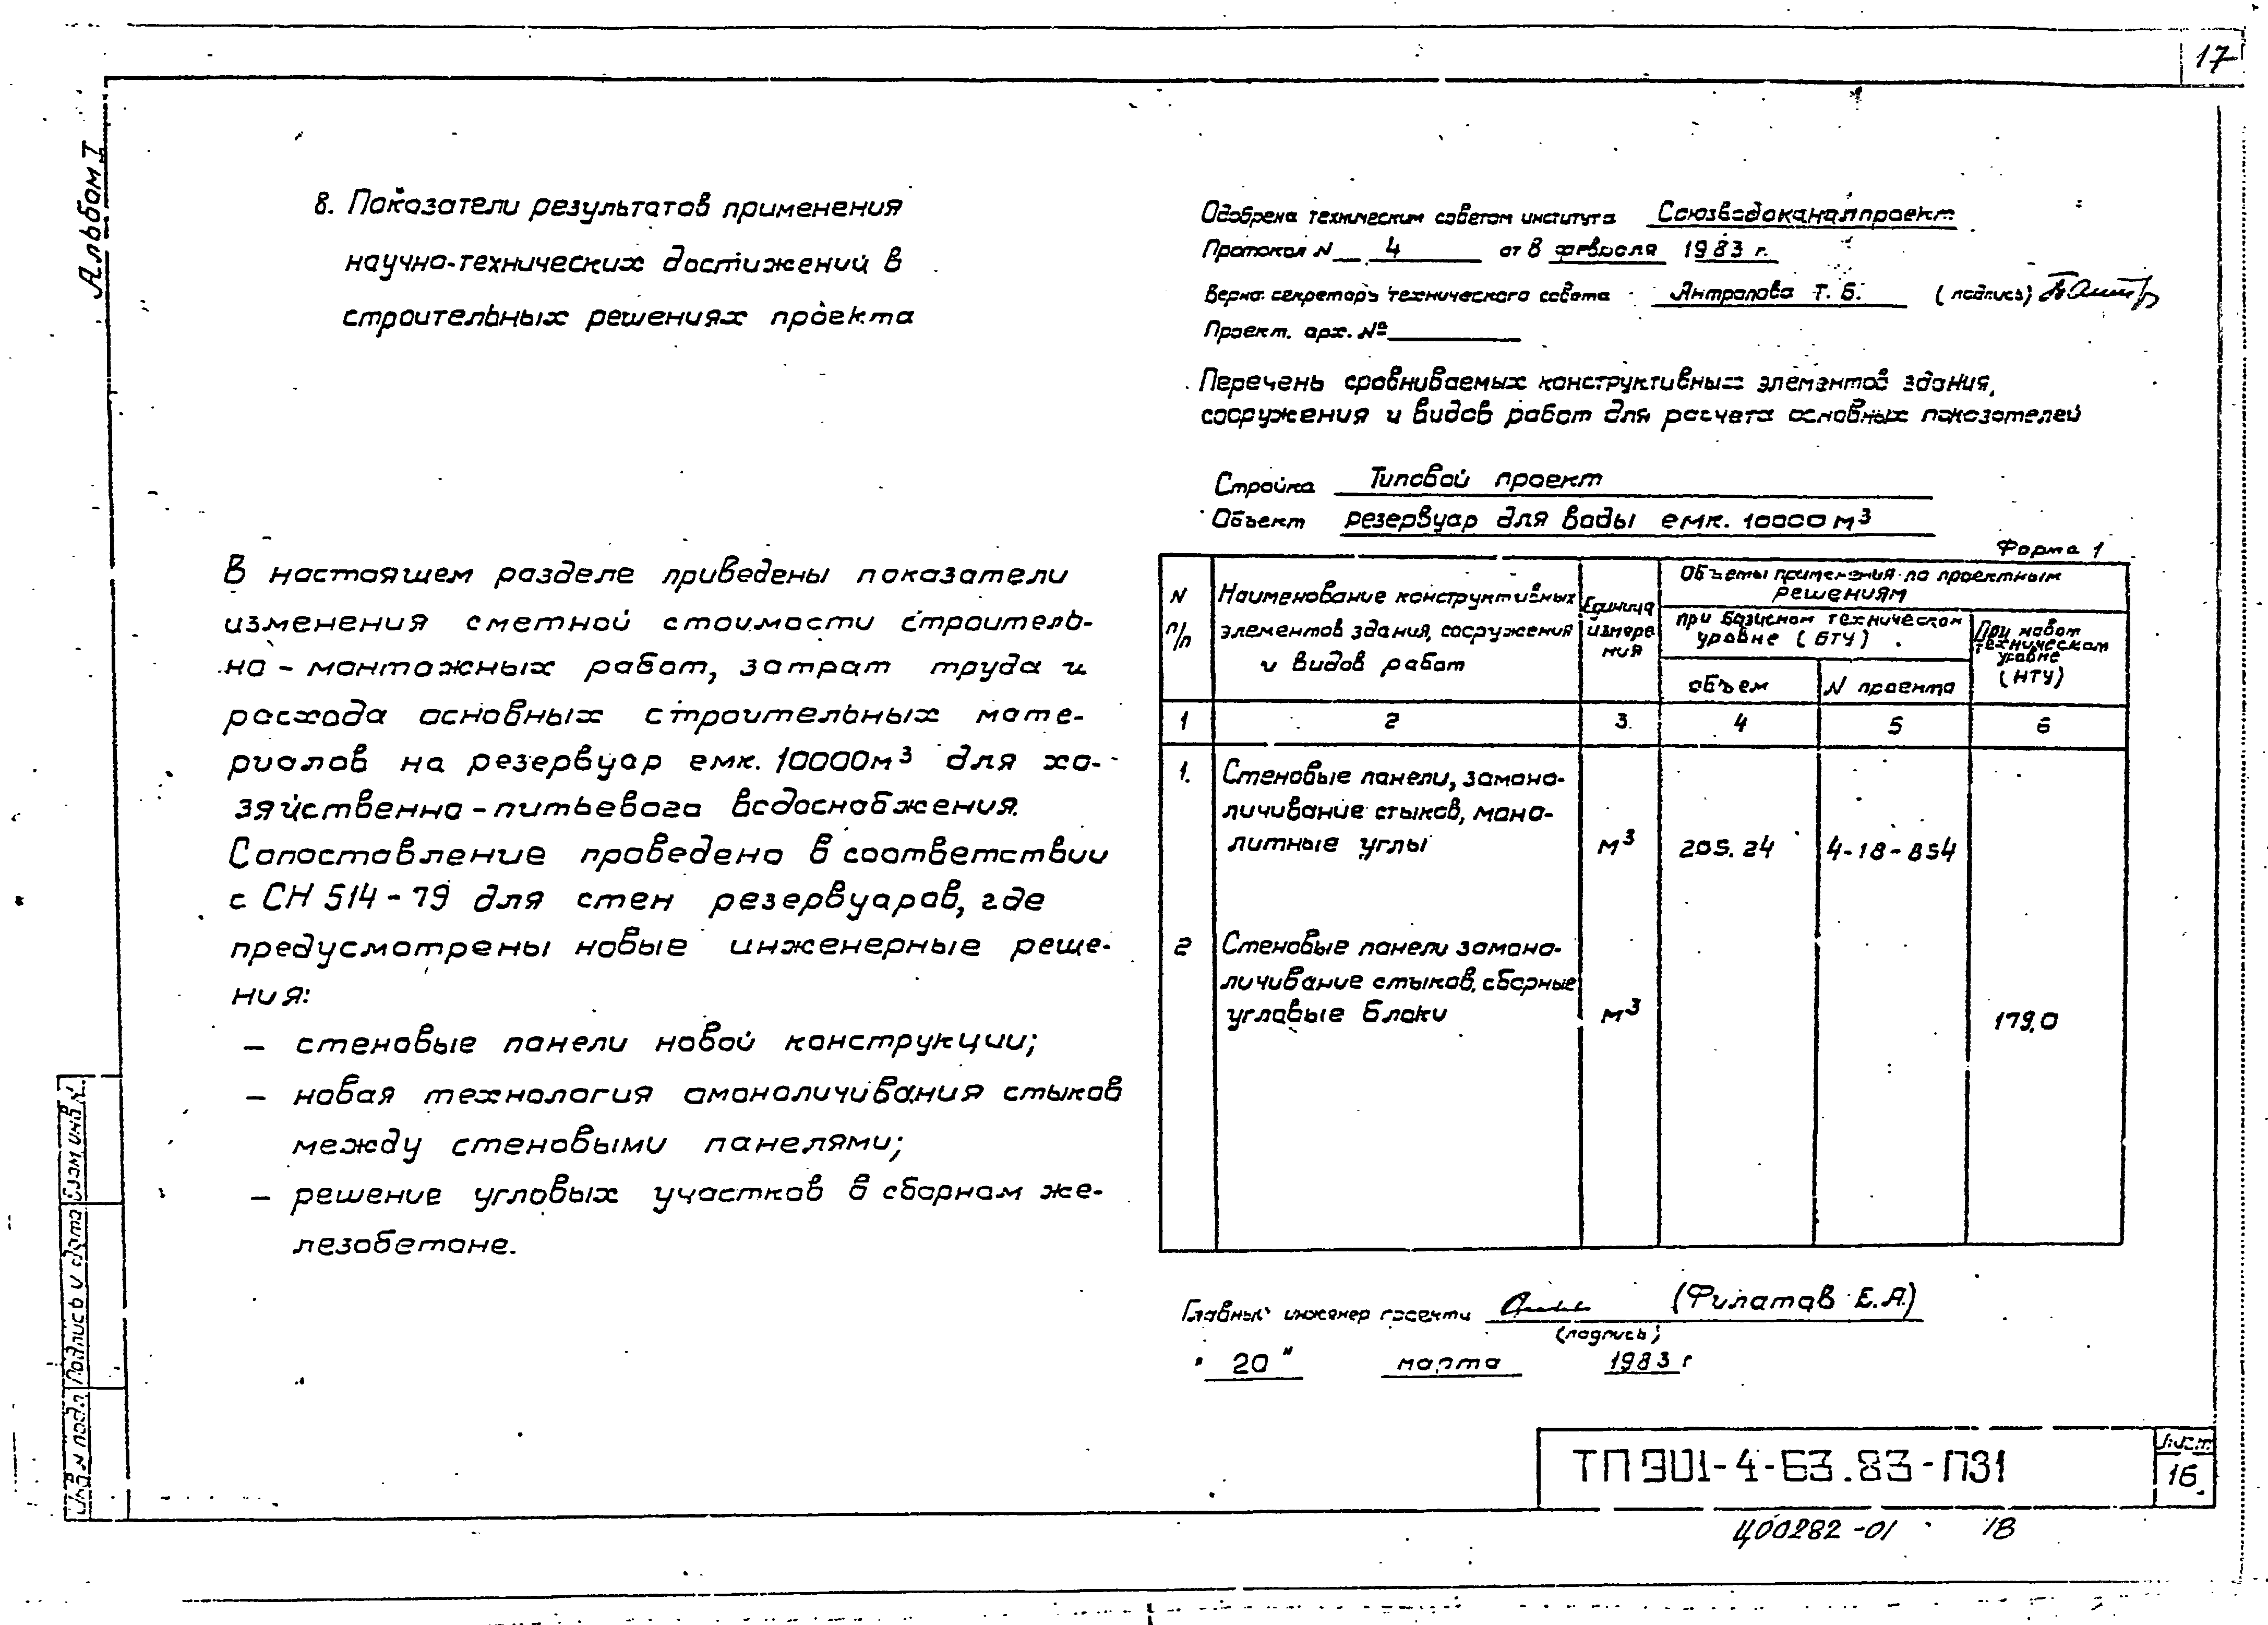 17
Альбом I
8. Показатели результатов применения
научно-технических достижений в
строительных решениях проекта
В настоящем разделе приведены показатели
изменения сметной стоимости строитель-
но-монтажных работ, затрат труда и
расхода основных строительных мате-
риалов на резервуар емк. 10000м³ для хо-
зяйственно-питьевого водоснабжения.
Сопоставление проведено в соответствии
с СН 514-79 для стен резервуаров, где
предусмотрены новые инженерные реше-
ния:
— стеновые панели новой конструкции;
— новая технология омоноличивания стыков
между стеновыми панелями;
— решение угловых участков в сборном же-
лезобетоне.
Одобрена техническим советом института Союзводоканалпроект
Протокол N 4 от 8 февраля 1983 г.
Верно: секретарь технического совета Антропова Т. Б. (подпись)
Проект. арх. №
Перечень сравниваемых конструктивных элементов здания,
сооружения и видов работ для расчета основных показателей
Стройка Типовой проект
Объект резервуар для воды емк. 10000 м³
Форма 1
N п/п
Наименование конструктивных
элементов здания, сооружения
и видов работ
Единица
измере
ния
Объемы применения по проектным
решениям
при базисном техническом
уровне (БТУ)
При новом
техническом
уровне
(НТУ)
объем
N проекта
1 2 3. 4 5 6
1. Стеновые панели, замоно-
личивание стыков, моно-
литные углы м³ 205.24 4-18-854
2 Стеновые панели замоно-
личивание стыков, сборные
угловые блоки м³ 179,0
Главный инженер проекта (Филатов Е.А)
(подпись)
" 20 " марта 1983 г
ТП 901-4-63.83-ПЗ1
Лист
16
Ц00282-01 18
Инв N подл.
Подпись и дата
Взам инв N